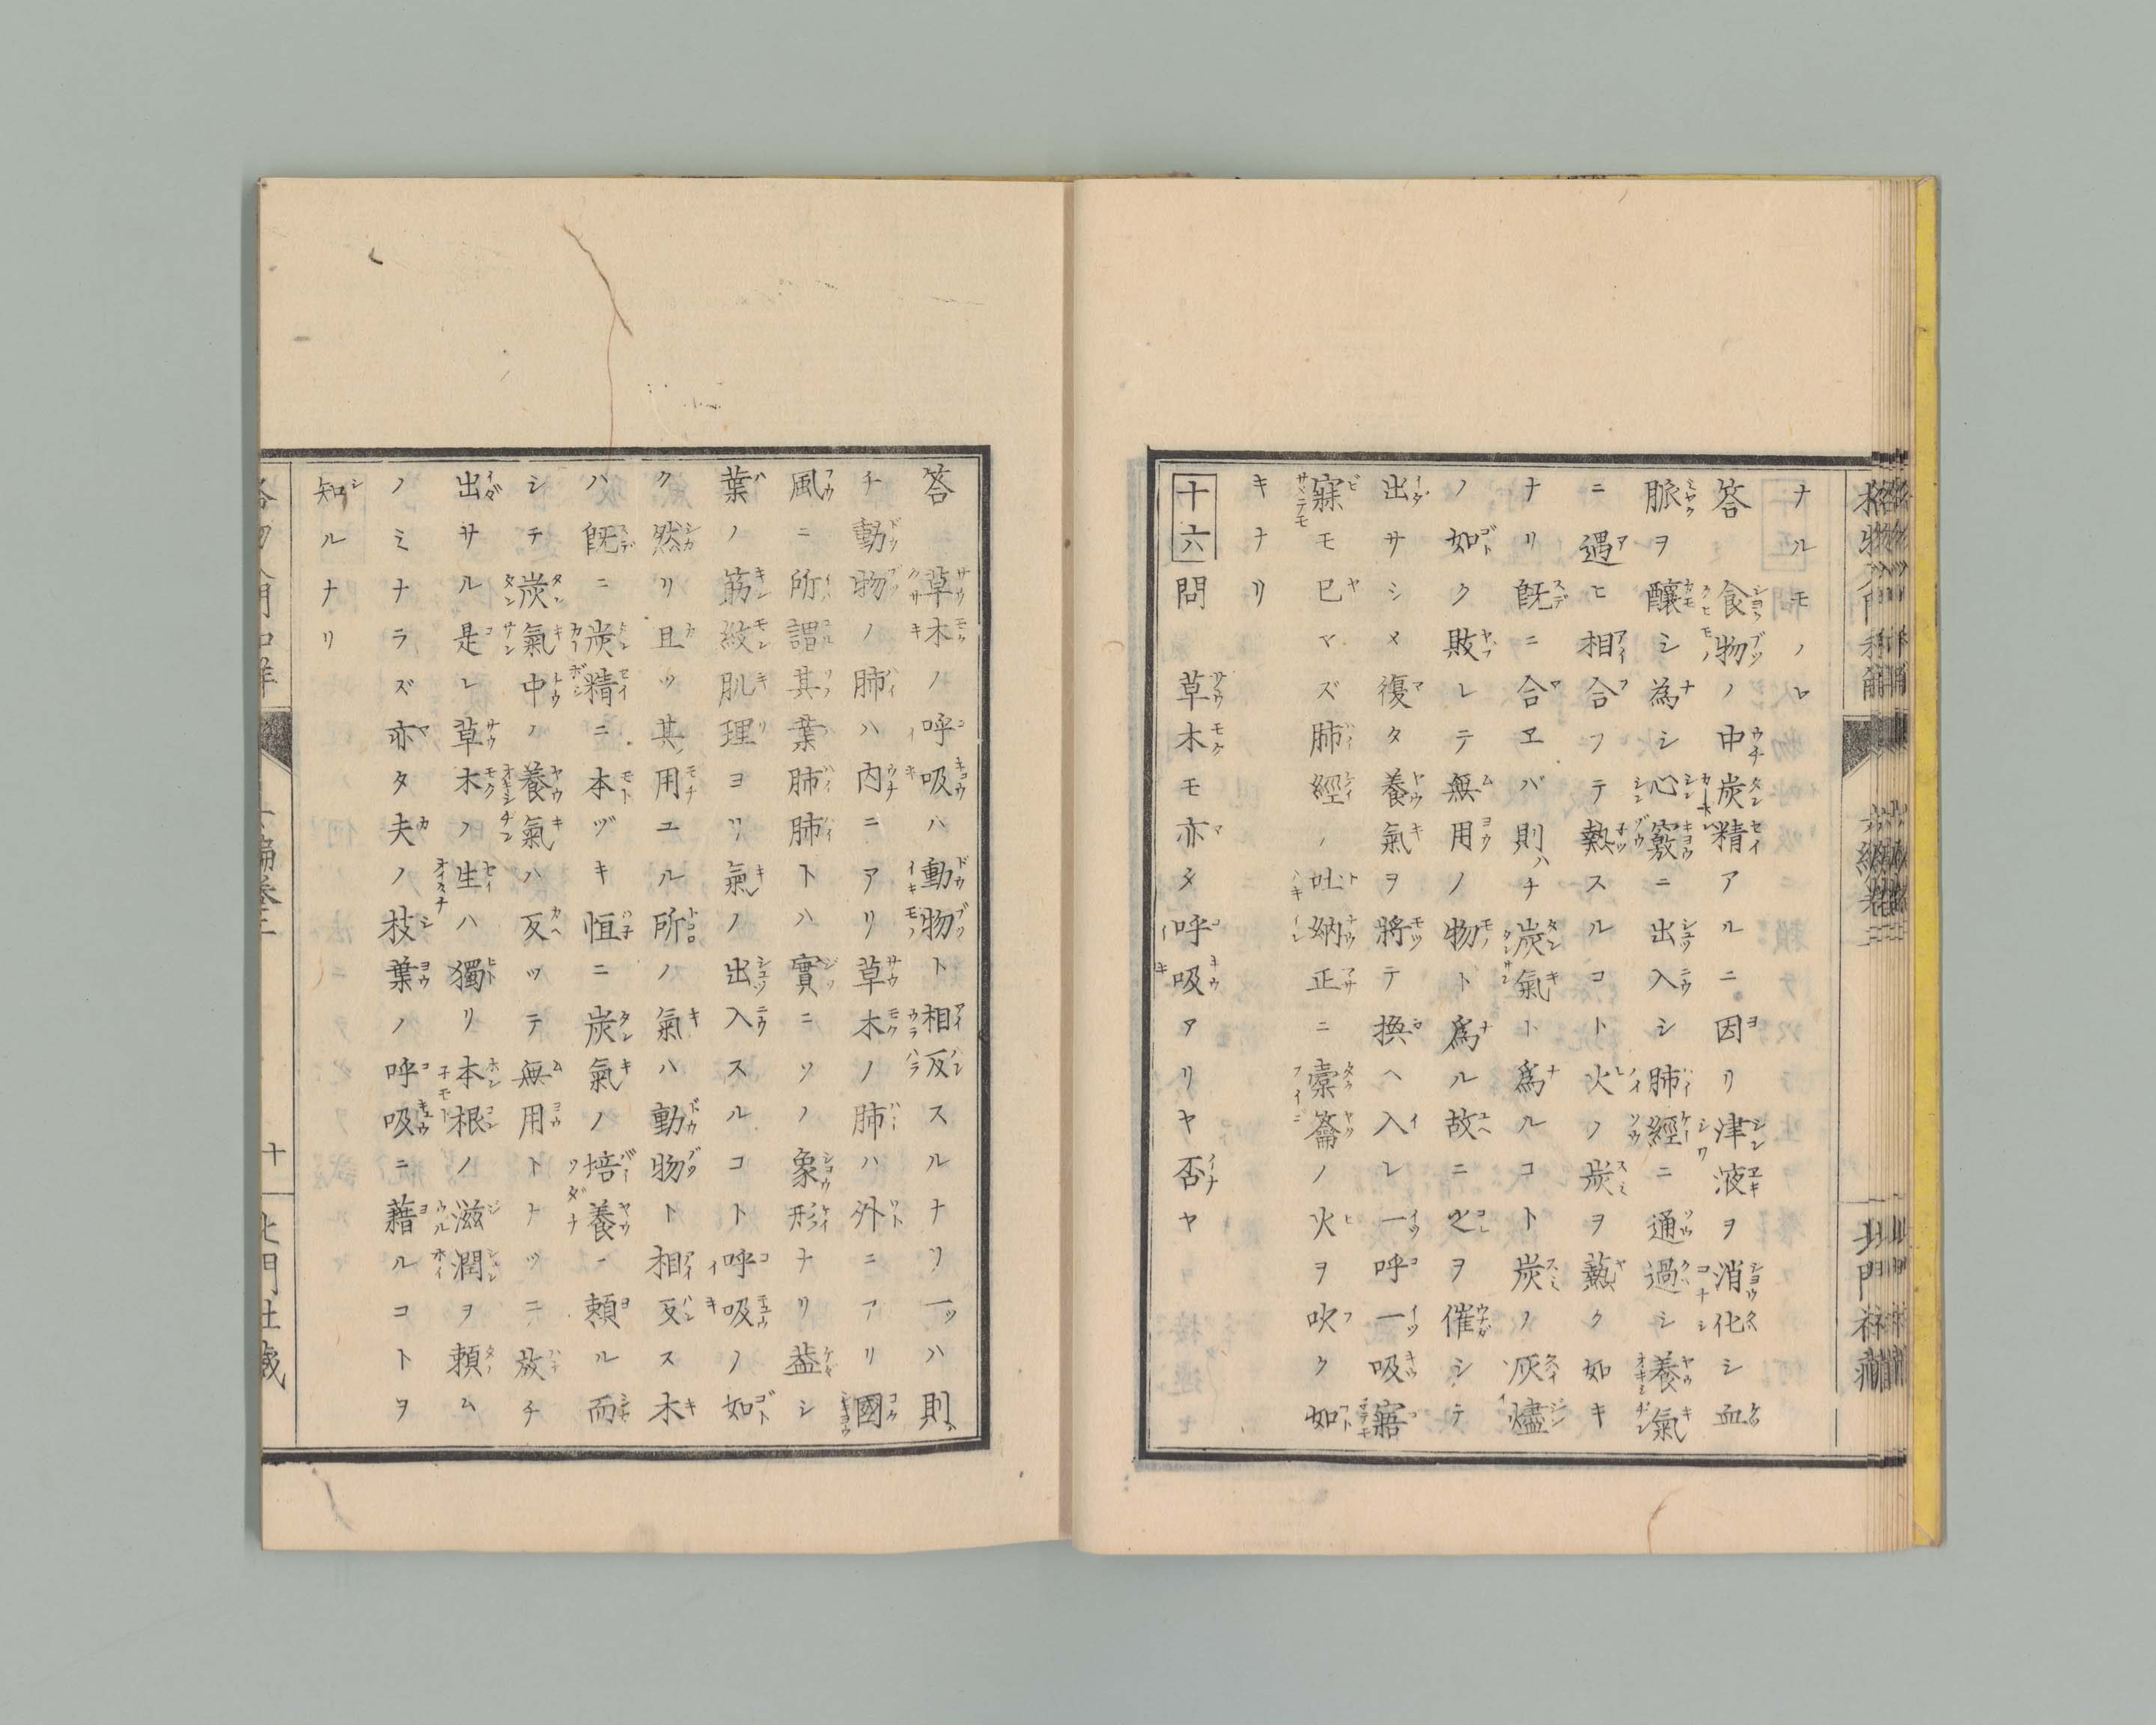 ナルモノレ
答 食物ノ中炭精アルニ因リ津液ヲ消化シ血
脈ヲ醸シ為シ心竅ニ出入シ肺經ニ通過シ養氣
ニ遇ヒ相合フテ熱スルコト火ノ炭ヲ爇ク如キ
ナリ既ニ合ヱバ則チ炭氣ト爲ルコト炭ノ灰燼
ノ如ク敗レテ無用ノ物ト爲ル故ニ之ヲ催シテ
出サシメ復タ養氣ヲ將テ換ヘ入レ一呼一吸寤
寐モ已マズ肺經ノ吐納正ニ槖籥ノ火ヲ吹ク如
キナリ
十六 問 草木モ亦タ呼吸アリヤ否ヤ
答 草木ノ呼吸ハ動物ト相反スルナリ一ツハ則
チ動物ノ肺ハ内ニアリ草木ノ肺ハ外ニアリ國
風ニ所謂其葉肺肺トハ實ニソノ象形ナリ葢シ
葉ノ筋紋肌理ヨリ氣ノ出入スルコト呼吸ノ如
ク然リ且ツ其用ユル所ノ氣ハ動物ト相反ス木
ハ既ニ炭精ニ本ヅキ恒ニ炭氣ノ培養ニ頼ル而
シテ炭氣中ノ養氣ハ反ツテ無用トナツニ放チ
出サル是レ草木ノ生ハ獨リ本根ノ滋潤ヲ頼ム
ノミナラズ亦タ夫ノ枝葉ノ呼吸ニ藉ルコトヲ
知ルナリ
十
北門社藏